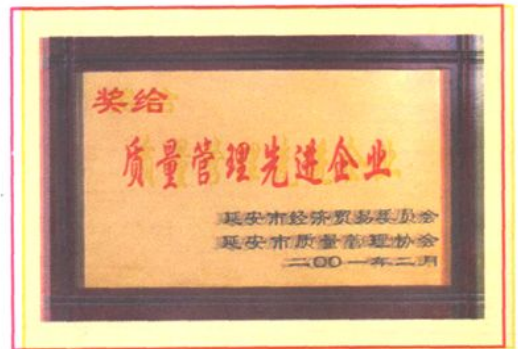 奖给
质量管理先进企业
延安市经济贸易委员会
延安市质量管理协会
二〇〇一年二月